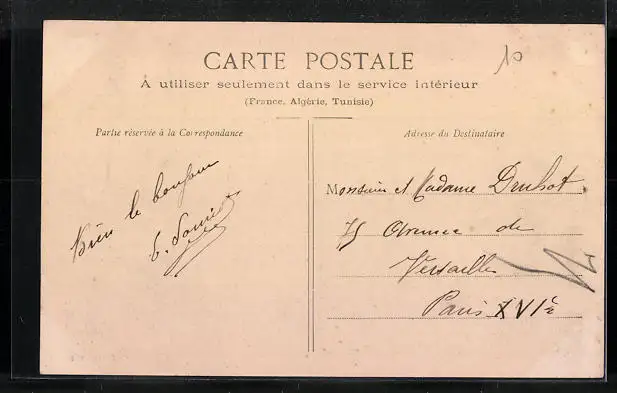 10
CARTE POSTALE
À utiliser seulement dans le service intérieur
(France, Algérie, Tunisie)
Partie réservée à la Correspondance
Bien le bonjour
Adresse du Destinataire
Monsieur et Madame
75 Avenue de
Versailles
Paris XVIe